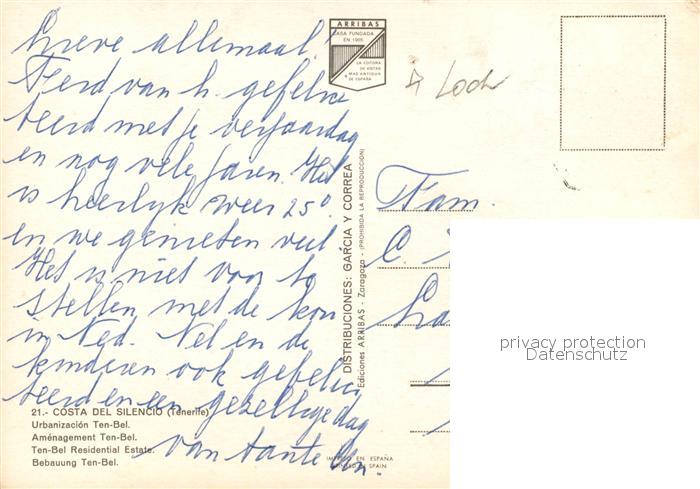 Lieve allemaal.
Feerd van h. gefelici
teerd met je verjaardag
en nog vele jaren. Het
is heerlijk weer 25°
en we genieten veel
Het is niet voor te
stellen met de kou
in Ned. Nel en de
kinderen ook gefelici
teerd en een gezellige dag
van tante
ARRIBAS
CASA FUNDADA
EN 1905
LA EDITORA
DE VISTAS
MAS ANTIGUA
DE ESPAÑA
Loch
DISTRIBUCIONES: GARCIA Y CORREA
Ediciones ARRIBAS - Zaragoza - (PROHIBIDA LA REPRODUCCION)
Fam.
C.
privacy protection
Datenschutz
21.- COSTA DEL SILENCIO (Tenerife)
Urbanización Ten-Bel.
Aménagement Ten-Bel.
Ten-Bel Residential Estate.
Bebauung Ten-Bel.
IMPRESO EN ESPAÑA
PRINTED IN SPAIN